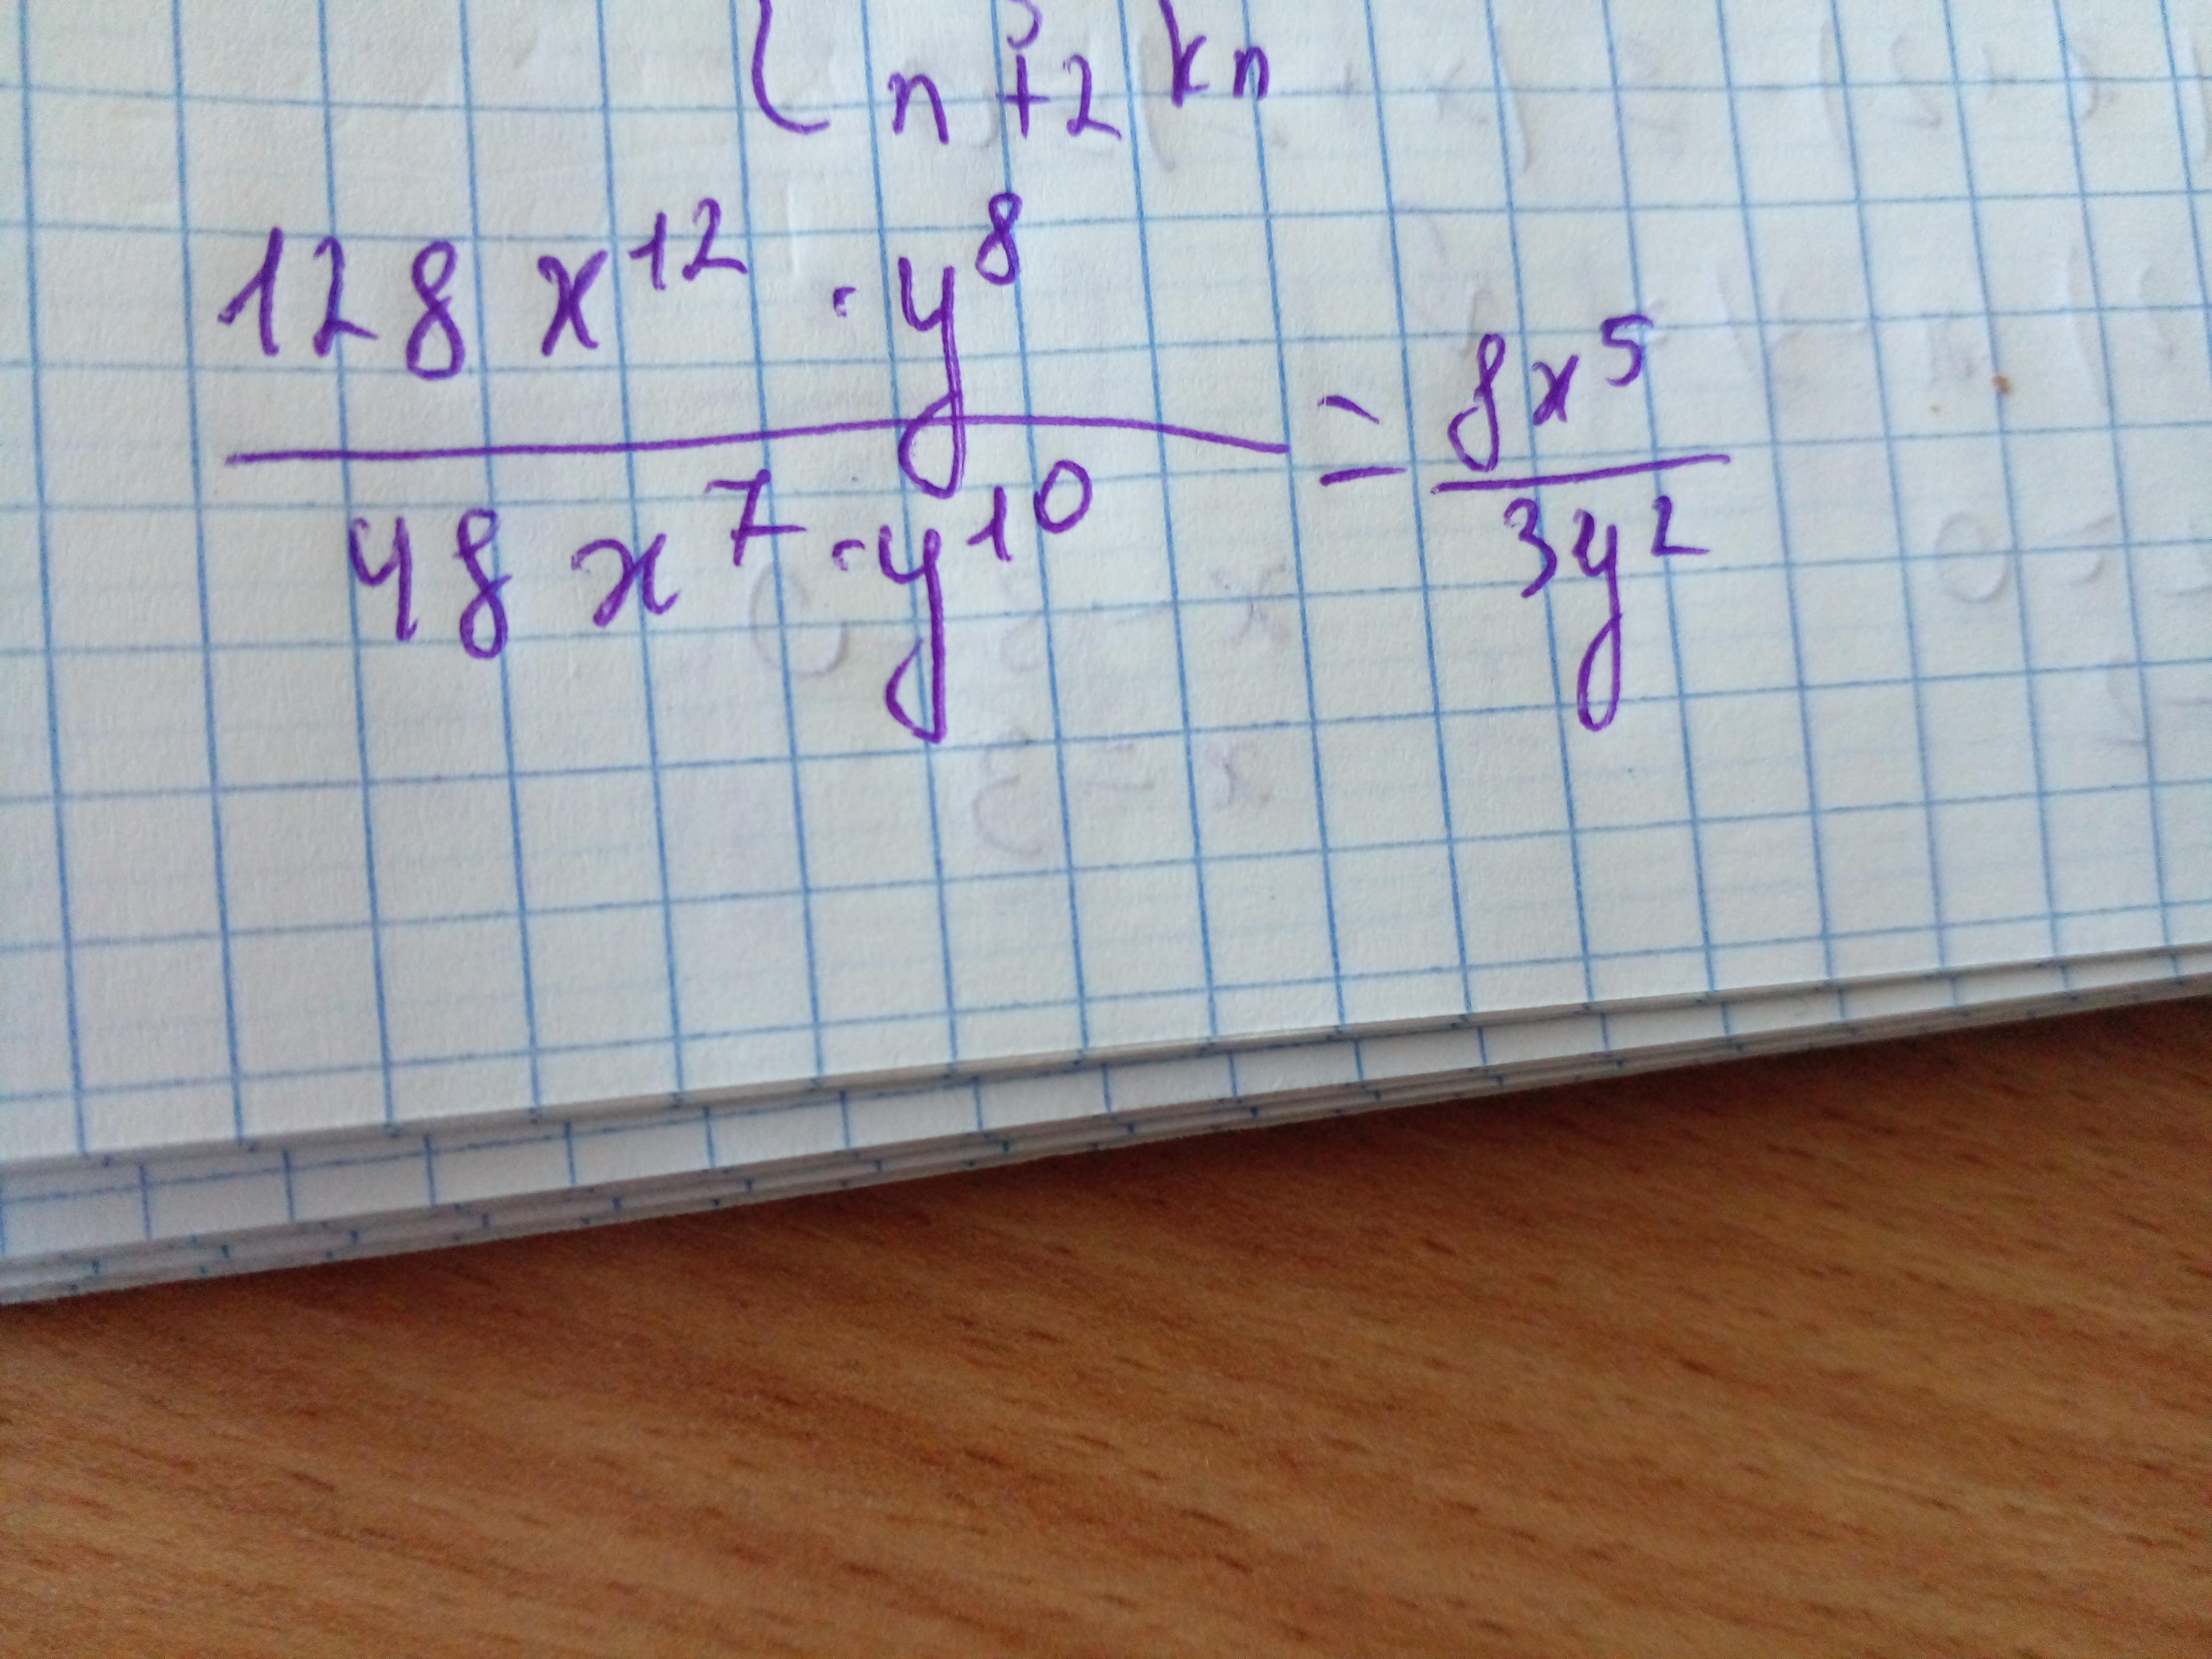 n+2 | kn
128 x¹² · y⁸ / 48 x⁷ · y¹⁰ = 8x⁵ / 3y²